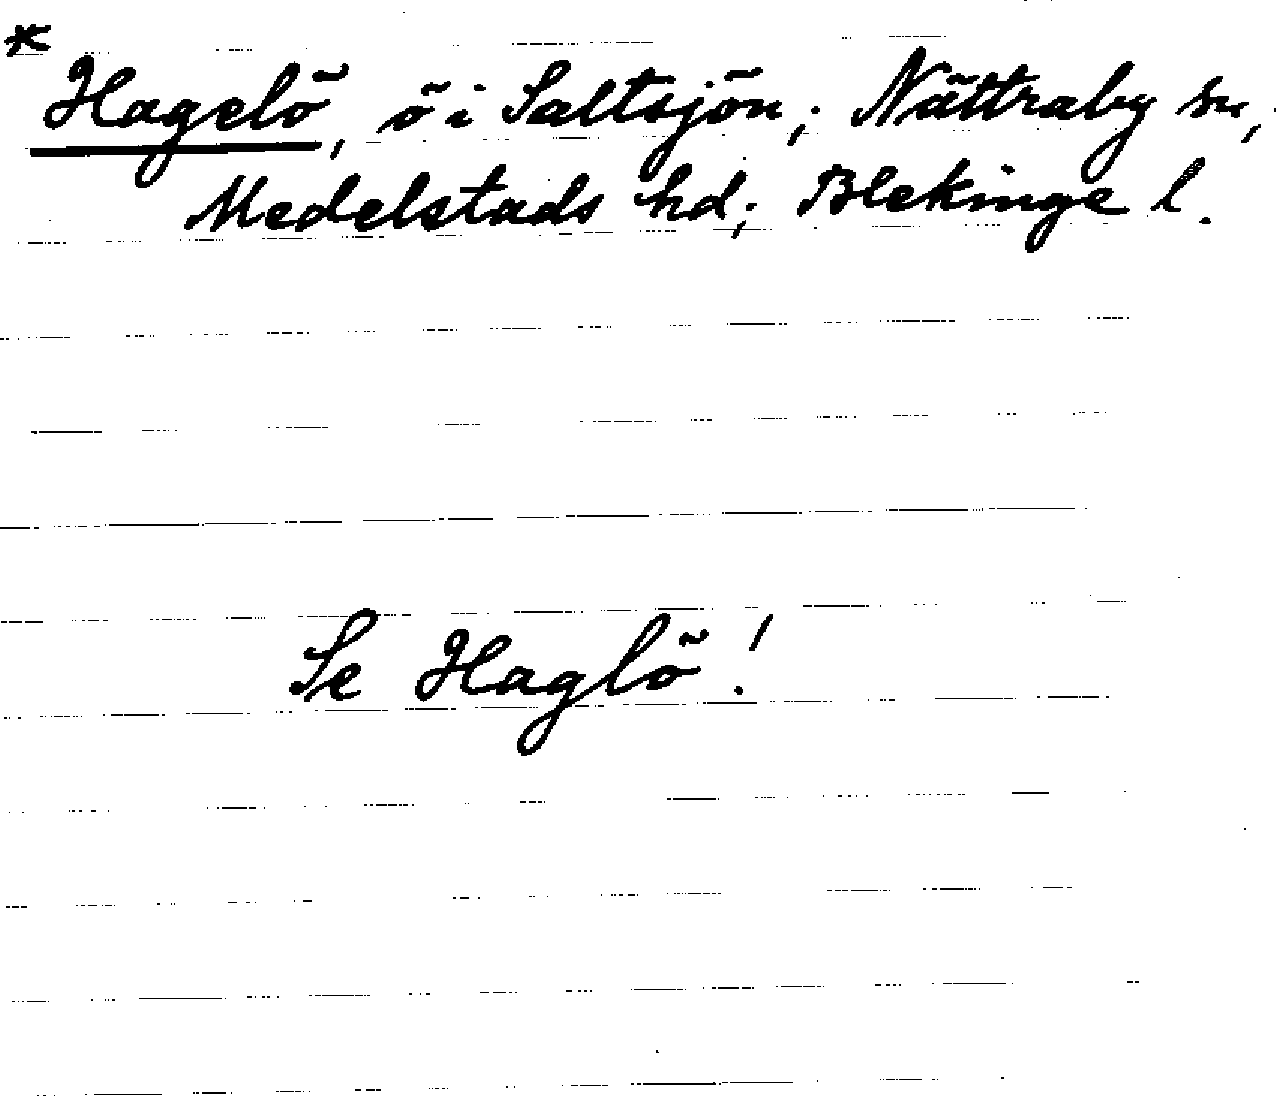 *
Hagelö, ö i Saltsjön; Nättraby sn,
Medelstads hd; Blekinge l.
Se Haglö!